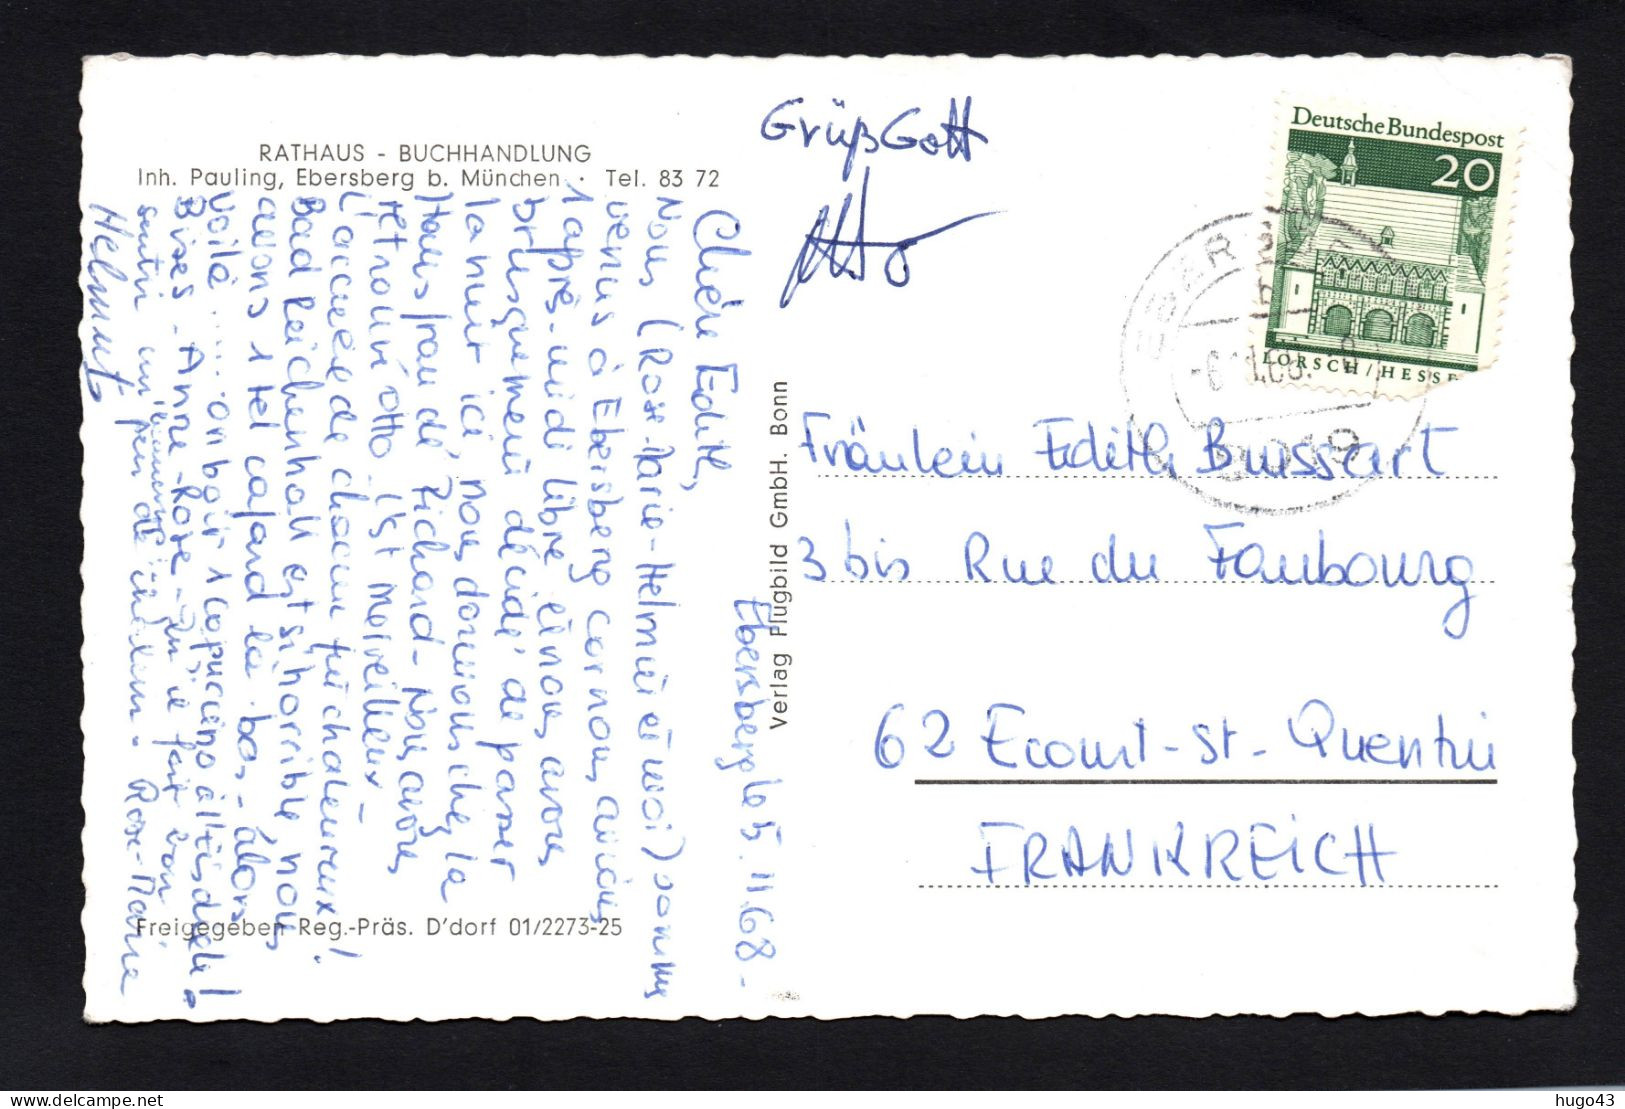 RATHAUS - BUCHHANDLUNG
Inh. Pauling, Ebersberg b. München · Tel. 83 72
Ebersberg le 5.11.68 -
Chère Edith,
Nous (Rose-Marie-Helmut et moi) sommes
venus à Ebersberg car nous avions
1 après-midi libre et nous avons
brusquement décidé de passer
la nuit ici, nous dormons chez la
Hausfrau de Richard - Nous avons
retrouvé Otto. C'st merveilleux -
l'accueil de chacun fut chaleureux!
Bad Reichenhall est si horrible nous
avons 1 tel cafard là-bas - alors
voilà .... on boit 1 capuccino à l'Eisdiele!
Bises - Anne-Rose -
sentir un peu de - Rose-Marie
Helmut
Freigegeben Reg.-Präs. D'dorf 01/2273-25
Verlag Flugbild GmbH. Bonn
Grüß Gott
Otto
Deutsche Bundespost
20
LORSCH/HESSE
EBERSBERG
8019
Fräulein Edith Buissart
3 bis Rue du Faubourg
62 Ecourt-St-Quentin
FRANKREICH
hugo43